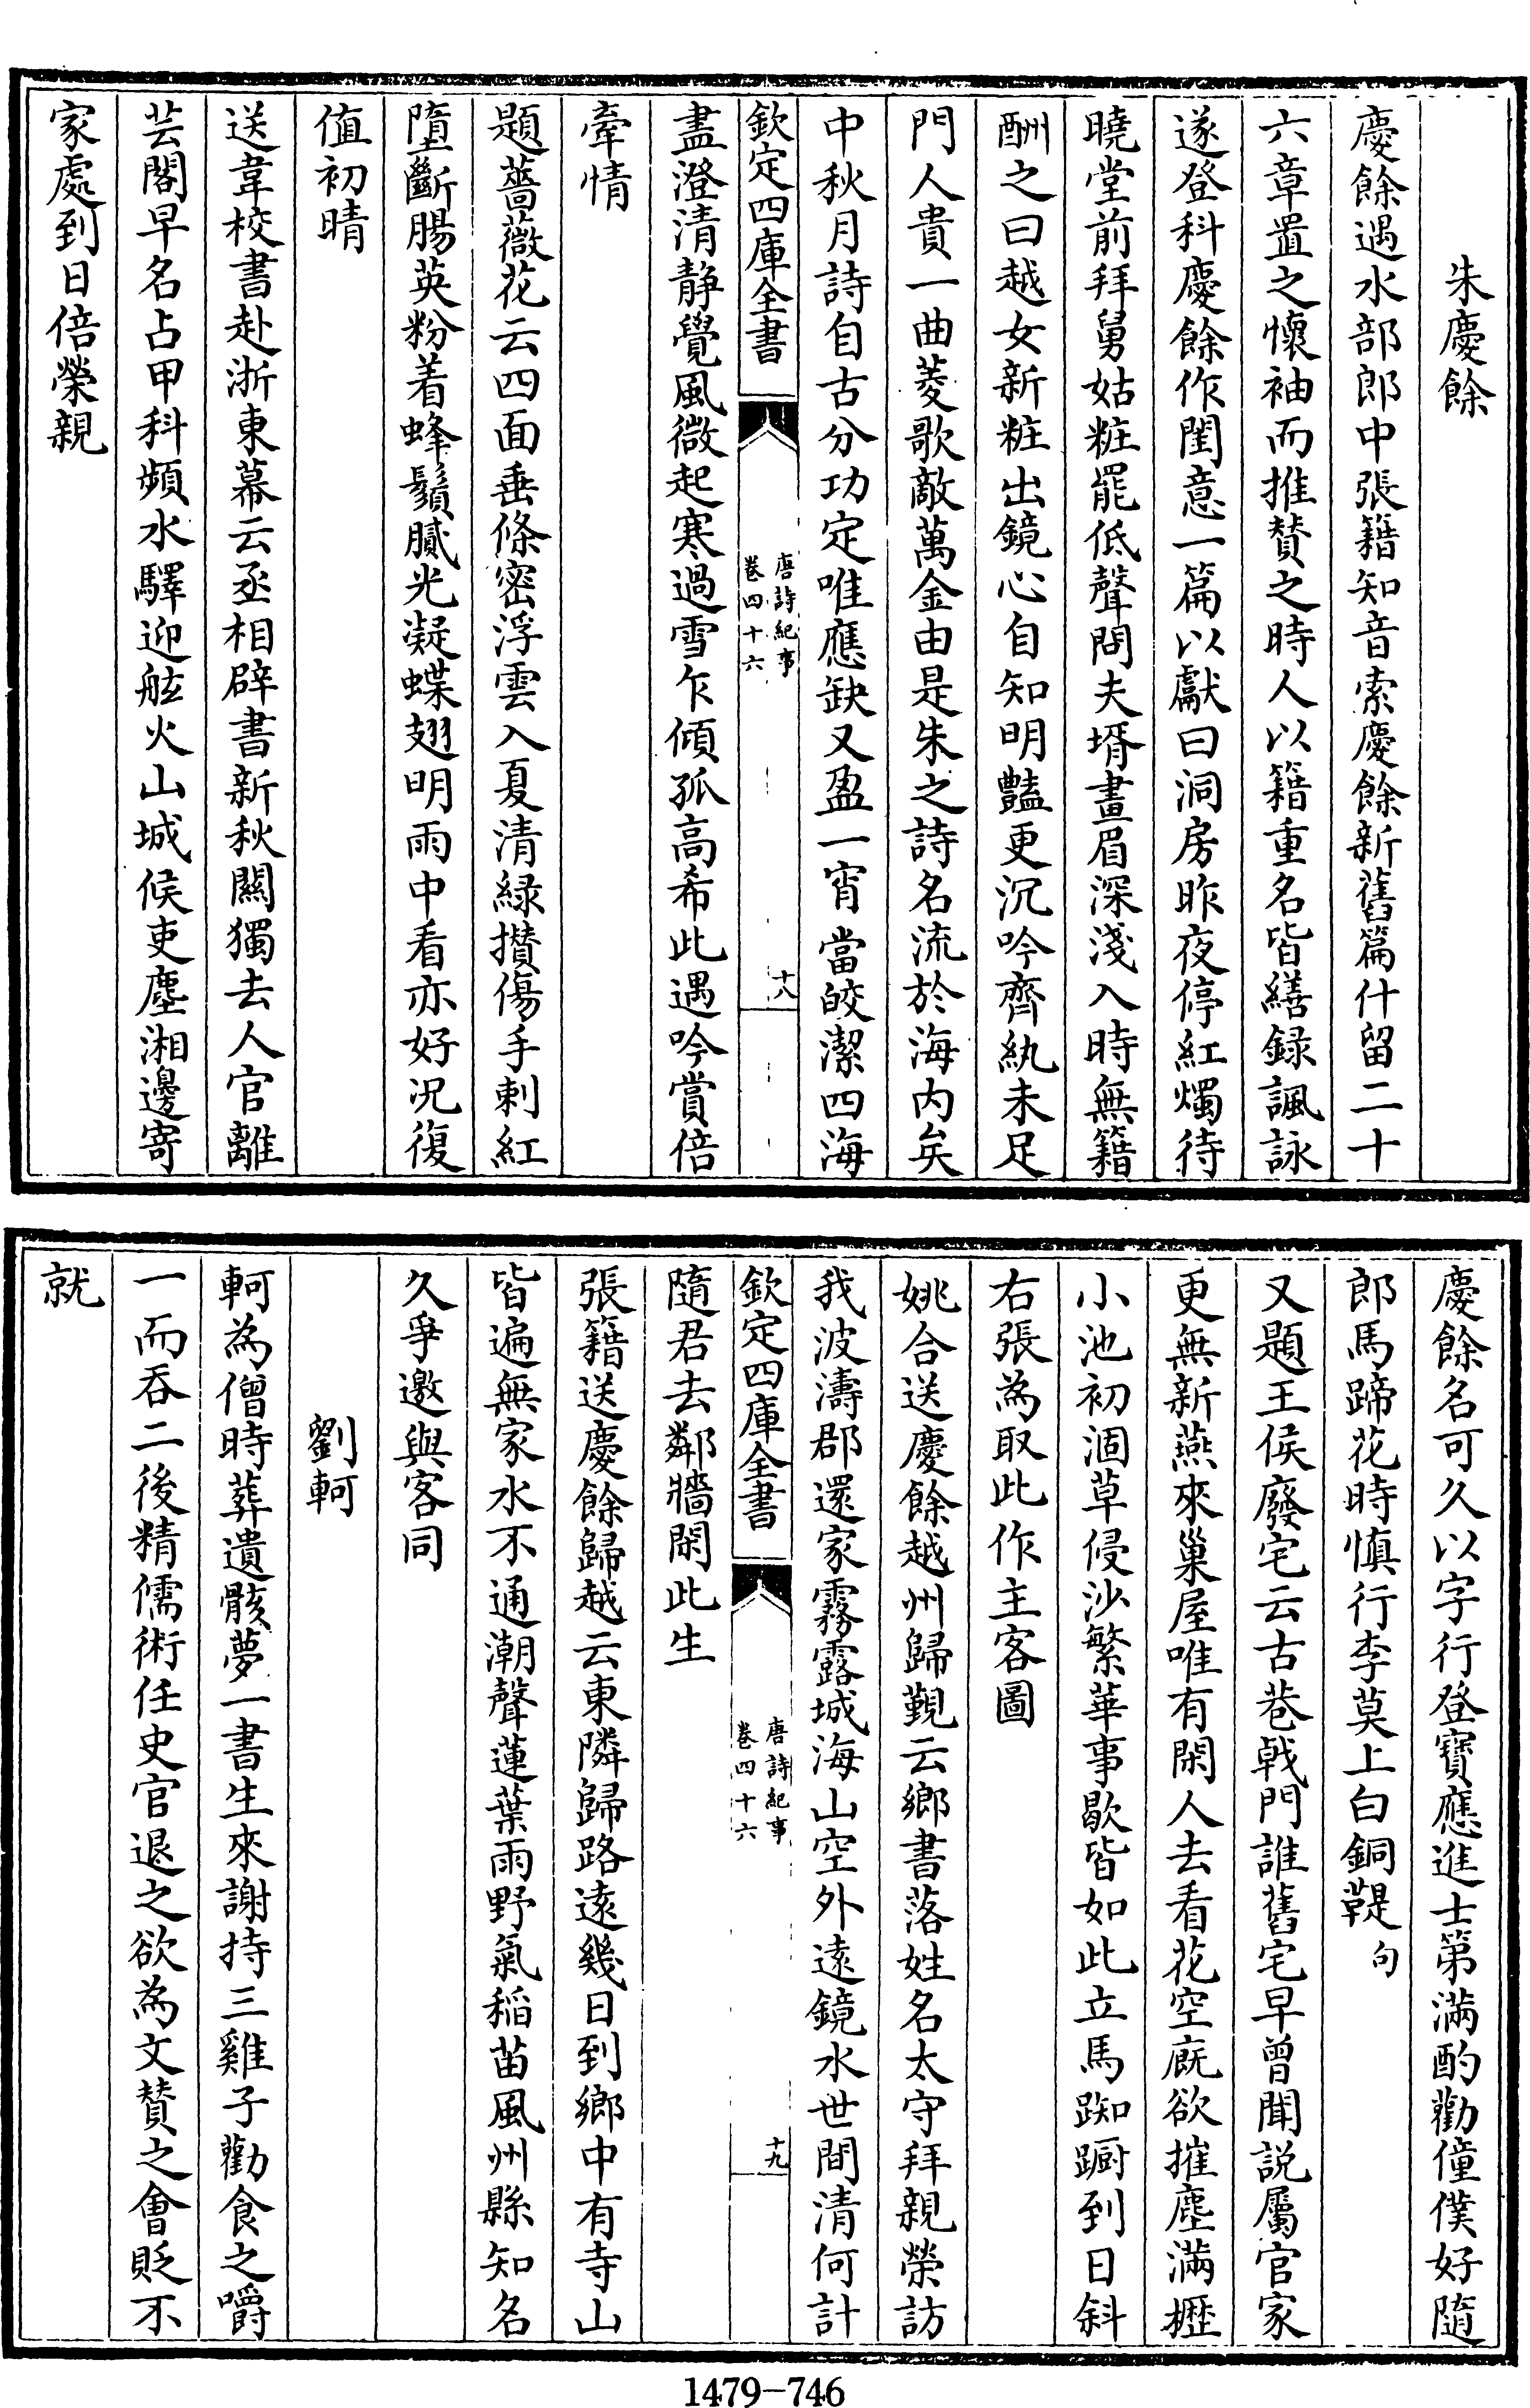 朱慶餘
慶餘遇水部郎中張籍知音索慶餘新舊篇什留二十
六章置之懷袖而推賛之時人以籍重名皆繕録諷詠
遂登科慶餘作閨意一篇以獻曰洞房昨夜停紅燭待
曉堂前拜舅姑粧罷低聲問夫壻畫眉深淺入時無籍
酬之曰越女新粧出鏡心自知明豔更沉吟齊紈未足
門人貴一曲菱歌敵萬金由是朱之詩名流於海内矣
中秋月詩自古分功定唯應缺又盈一宵當皎潔四海
欽定四庫全書
唐詩紀事
卷四十六
十八
盡澄清静覺風微起寒過雪乍傾孤高希此遇吟賞倍
牽情
題薔薇花云四面垂條密浮雲入夏清緑攅傷手刺紅
墮斷腸英粉着蜂鬚膩光凝蝶翅明雨中看亦好况復
值初晴
送韋校書赴浙東幕云丞相辟書新秋闗獨去人官離
芸閣早名占甲科頻水驛迎舷火山城候吏塵湘邊寄
家處到日倍榮親
慶餘名可久以字行登寶應進士第滿酌勸僮僕好隨
郎馬蹄花時慎行李莫上白銅鞮句
又題王侯廢宅云古巷戟門誰舊宅早曾聞説屬官家
更無新燕來巢屋唯有閑人去看花空厩欲摧塵滿櫪
小池初涸草侵沙繁華事歇皆如此立馬踟蹰到日斜
右張為取此作主客圖
姚合送慶餘越州歸覲云鄉書落姓名太守拜親榮訪
我波濤郡還家霧露城海山空外遠鏡水世間清何計
欽定四庫全書
唐詩紀事
卷四十六
十九
隨君去鄰牆閑此生
張籍送慶餘歸越云東隣歸路遠幾日到鄉中有寺山
皆遍無家水不通潮聲蓮葉雨野氣稲苗風州縣知名
久爭邀與客同
劉軻
軻為僧時葬遺骸夢一書生來謝持三雞子勸食之嚼
一而吞二後精儒術任史官退之欲為文賛之會貶不
就
1479-746